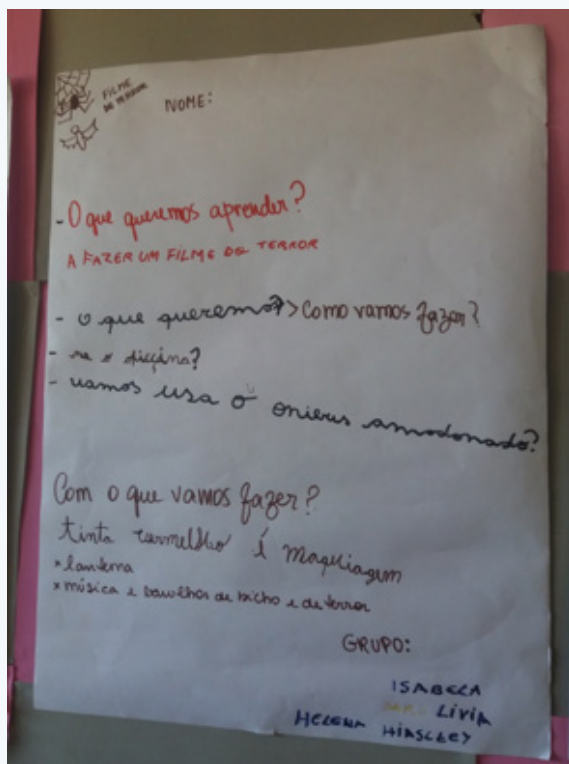 FILME
DE TERROR
NOME:
- O que queremos aprender?
A FAZER UM FILME DE TERROR
- o que queremos? > Como vamos fazer?
- ?
- vamos usa o onieus amodonado?
Com o que vamos fazer?
tinta vermelho é Maquiagem
* lanterna
* música e barulhos de bicho e de terror
GRUPO:
ISABELA
LIVIA
HELENA HINSCLEY